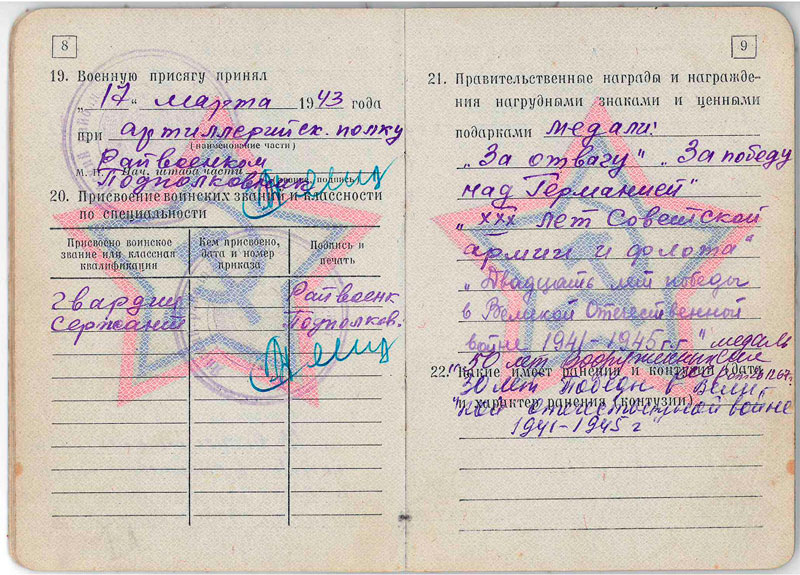 8
19. Военную присягу принял
„17" марта 1943 года
при артиллерийск. полку
(наименование части)
Райвоенком
М. П. Нач. штаба части
Подполковник
20. Присвоение воинских званий и классности
по специальности
Присвоено воинское звание или классная квалификация
Кем присвоено, дата и номер приказа
Подпись и печать
гвардии Райвоенк
Сержант Подполков.
9
21. Правительственные награды и награжде-
ния нагрудными знаками и ценными
подарками медали:
„За отвагу" „За победу
над Германией"
„XXX лет Советской
армии и флота"
„Двадцать лет победы
в Великой Отечественной
войне 1941-1945гг" медаль
"50 лет Вооруженных сил
22. Какие имеет ранения и контузии (дата
"30 лет Победы в Вели
и характер ранения (контузии)
кой отечественной войне
1941-1945 г"